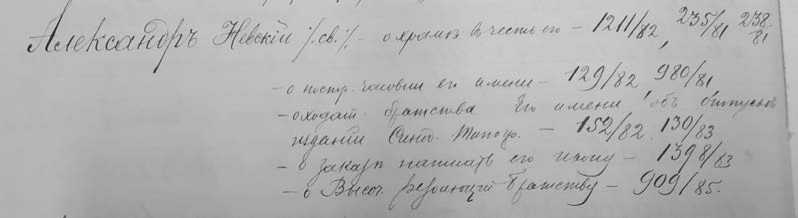 Александръ Невскій /св./ – о храмѣ въ честь его – 1211/82, 235/81 238/81
– о постр. часовни его имени – 129/82 980/81
– о ходат. братства Его имени объ выпускѣ
изданій Синод. Типогр. – 152/82. 130/83
– о заказѣ написать его икону – 1398/83
– о Высоч. резолюціи братству – 909/85.